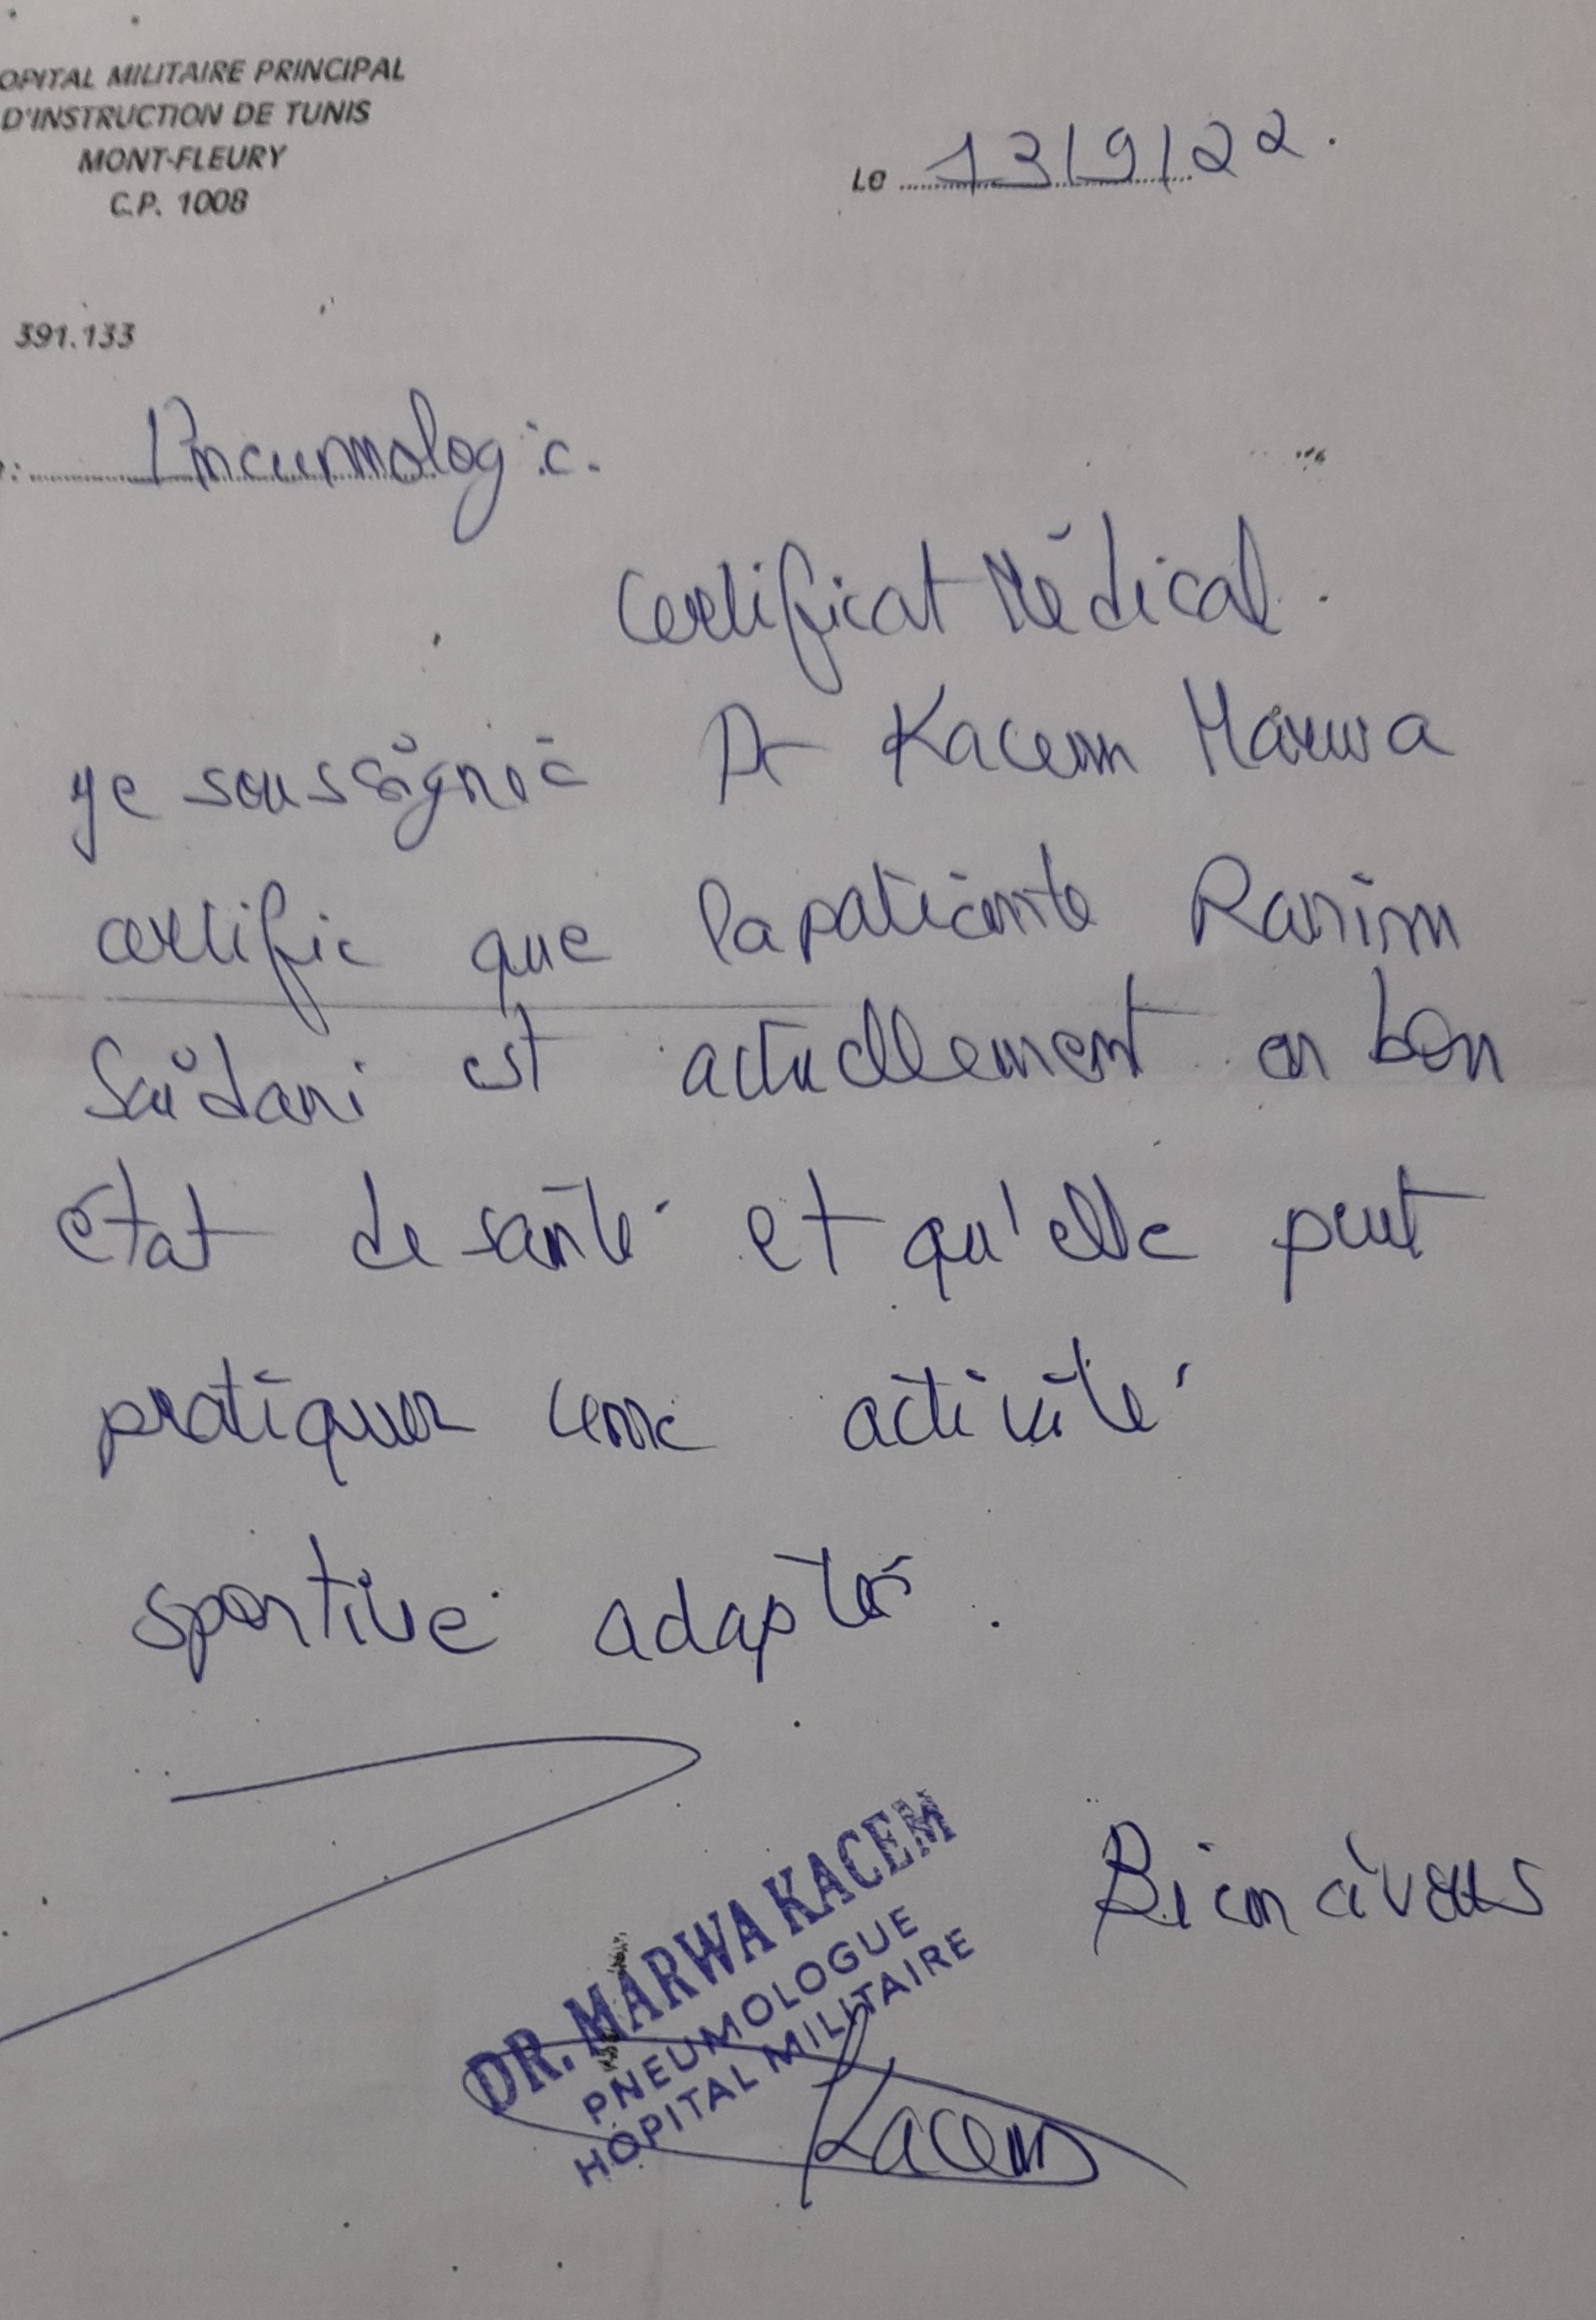 OPITAL MILITAIRE PRINCIPAL
D'INSTRUCTION DE TUNIS
MONT-FLEURY
C.P. 1008
Le 13/9/22.
391.133
: Pneumologie.
Certificat Médical.
Je soussigné Dr Kacem Marwa
certifie que la patiente Ranim
Saïdani est actuellement en bon
état de santé et qu'elle peut
pratiquer une activité
sportive adapté.
Bien à vous
DR. MARWA KACEM
PNEUMOLOGUE
HOPITAL MILITAIRE
Kacem